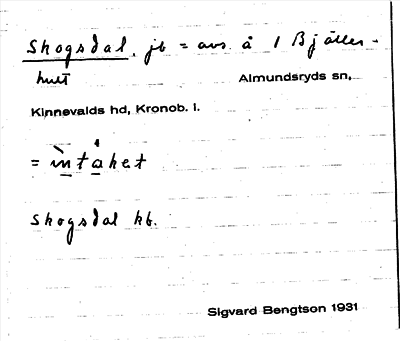 Skogsdal. jb = avs. å 1 Bjäller-
hult Almundsryds sn,
Kinnevalds hd, Kronob. l.
= ìntáket
Skogsdal kb.
Sigvard Bengtson 1931